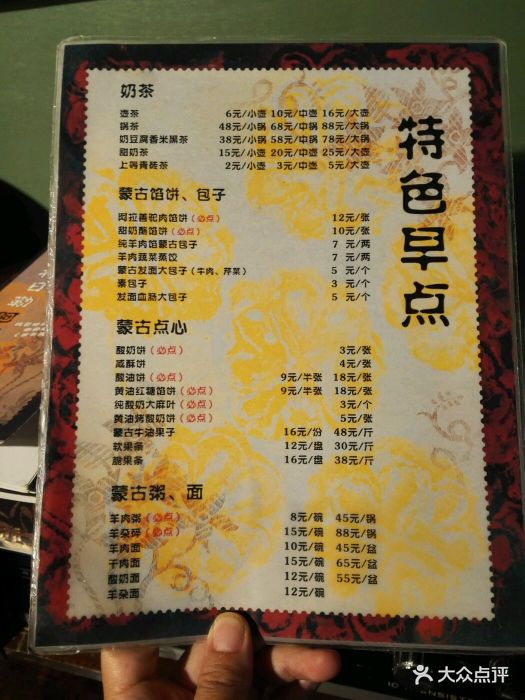 特色早点
奶茶
壶茶 6元/小壶 10元/中壶 16元/大壶
锅茶 48元/小锅 68元/中锅 88元/大锅
奶豆腐香米黑茶 38元/小锅 58元/中锅 78元/大锅
甜奶茶 15元/小壶 20元/中壶 25元/大壶
上等青砖茶 2元/小壶 3元/中壶 5元/大壶
蒙古馅饼、包子
阿拉善驼肉馅饼(必点) 12元/张
甜奶酪馅饼(必点) 10元/张
纯羊肉馅蒙古包子 7 元/两
羊肉蔬菜蒸饺 7 元/两
蒙古发面大包子(牛肉、芹菜) 5 元/个
素包子 3 元/个
发面血肠大包子 5 元/个
蒙古点心
酸奶饼(必点) 3元/张
咸酥饼 4元/张
酸油饼(必点) 9元/半张 18元/张
黄油红糖馅饼(必点) 9元/半张 18元/张
纯酸奶大麻叶(必点) 3元/个
黄油烤酸奶饼(必点) 5元/张
蒙古牛油果子 16元/份 48元/斤
软果条 12元/盘 30元/斤
脆果条 16元/盘 38元/斤
蒙古粥、面
羊肉粥(必点) 8元/碗 45元/锅
羊杂碎(必点) 15元/碗 88元/锅
羊肉面 10元/碗 45元/盆
干肉面 15元/碗 65元/盆
酸奶面 12元/碗 55元/盆
羊杂面 12元/碗
大众点评